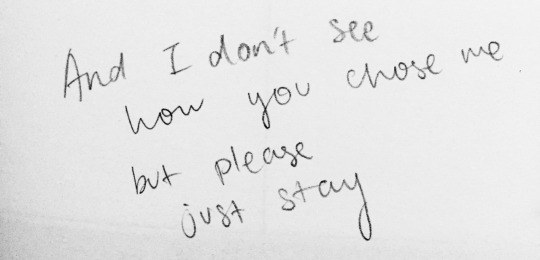 And I don't see
how you chose me
but please
just stay